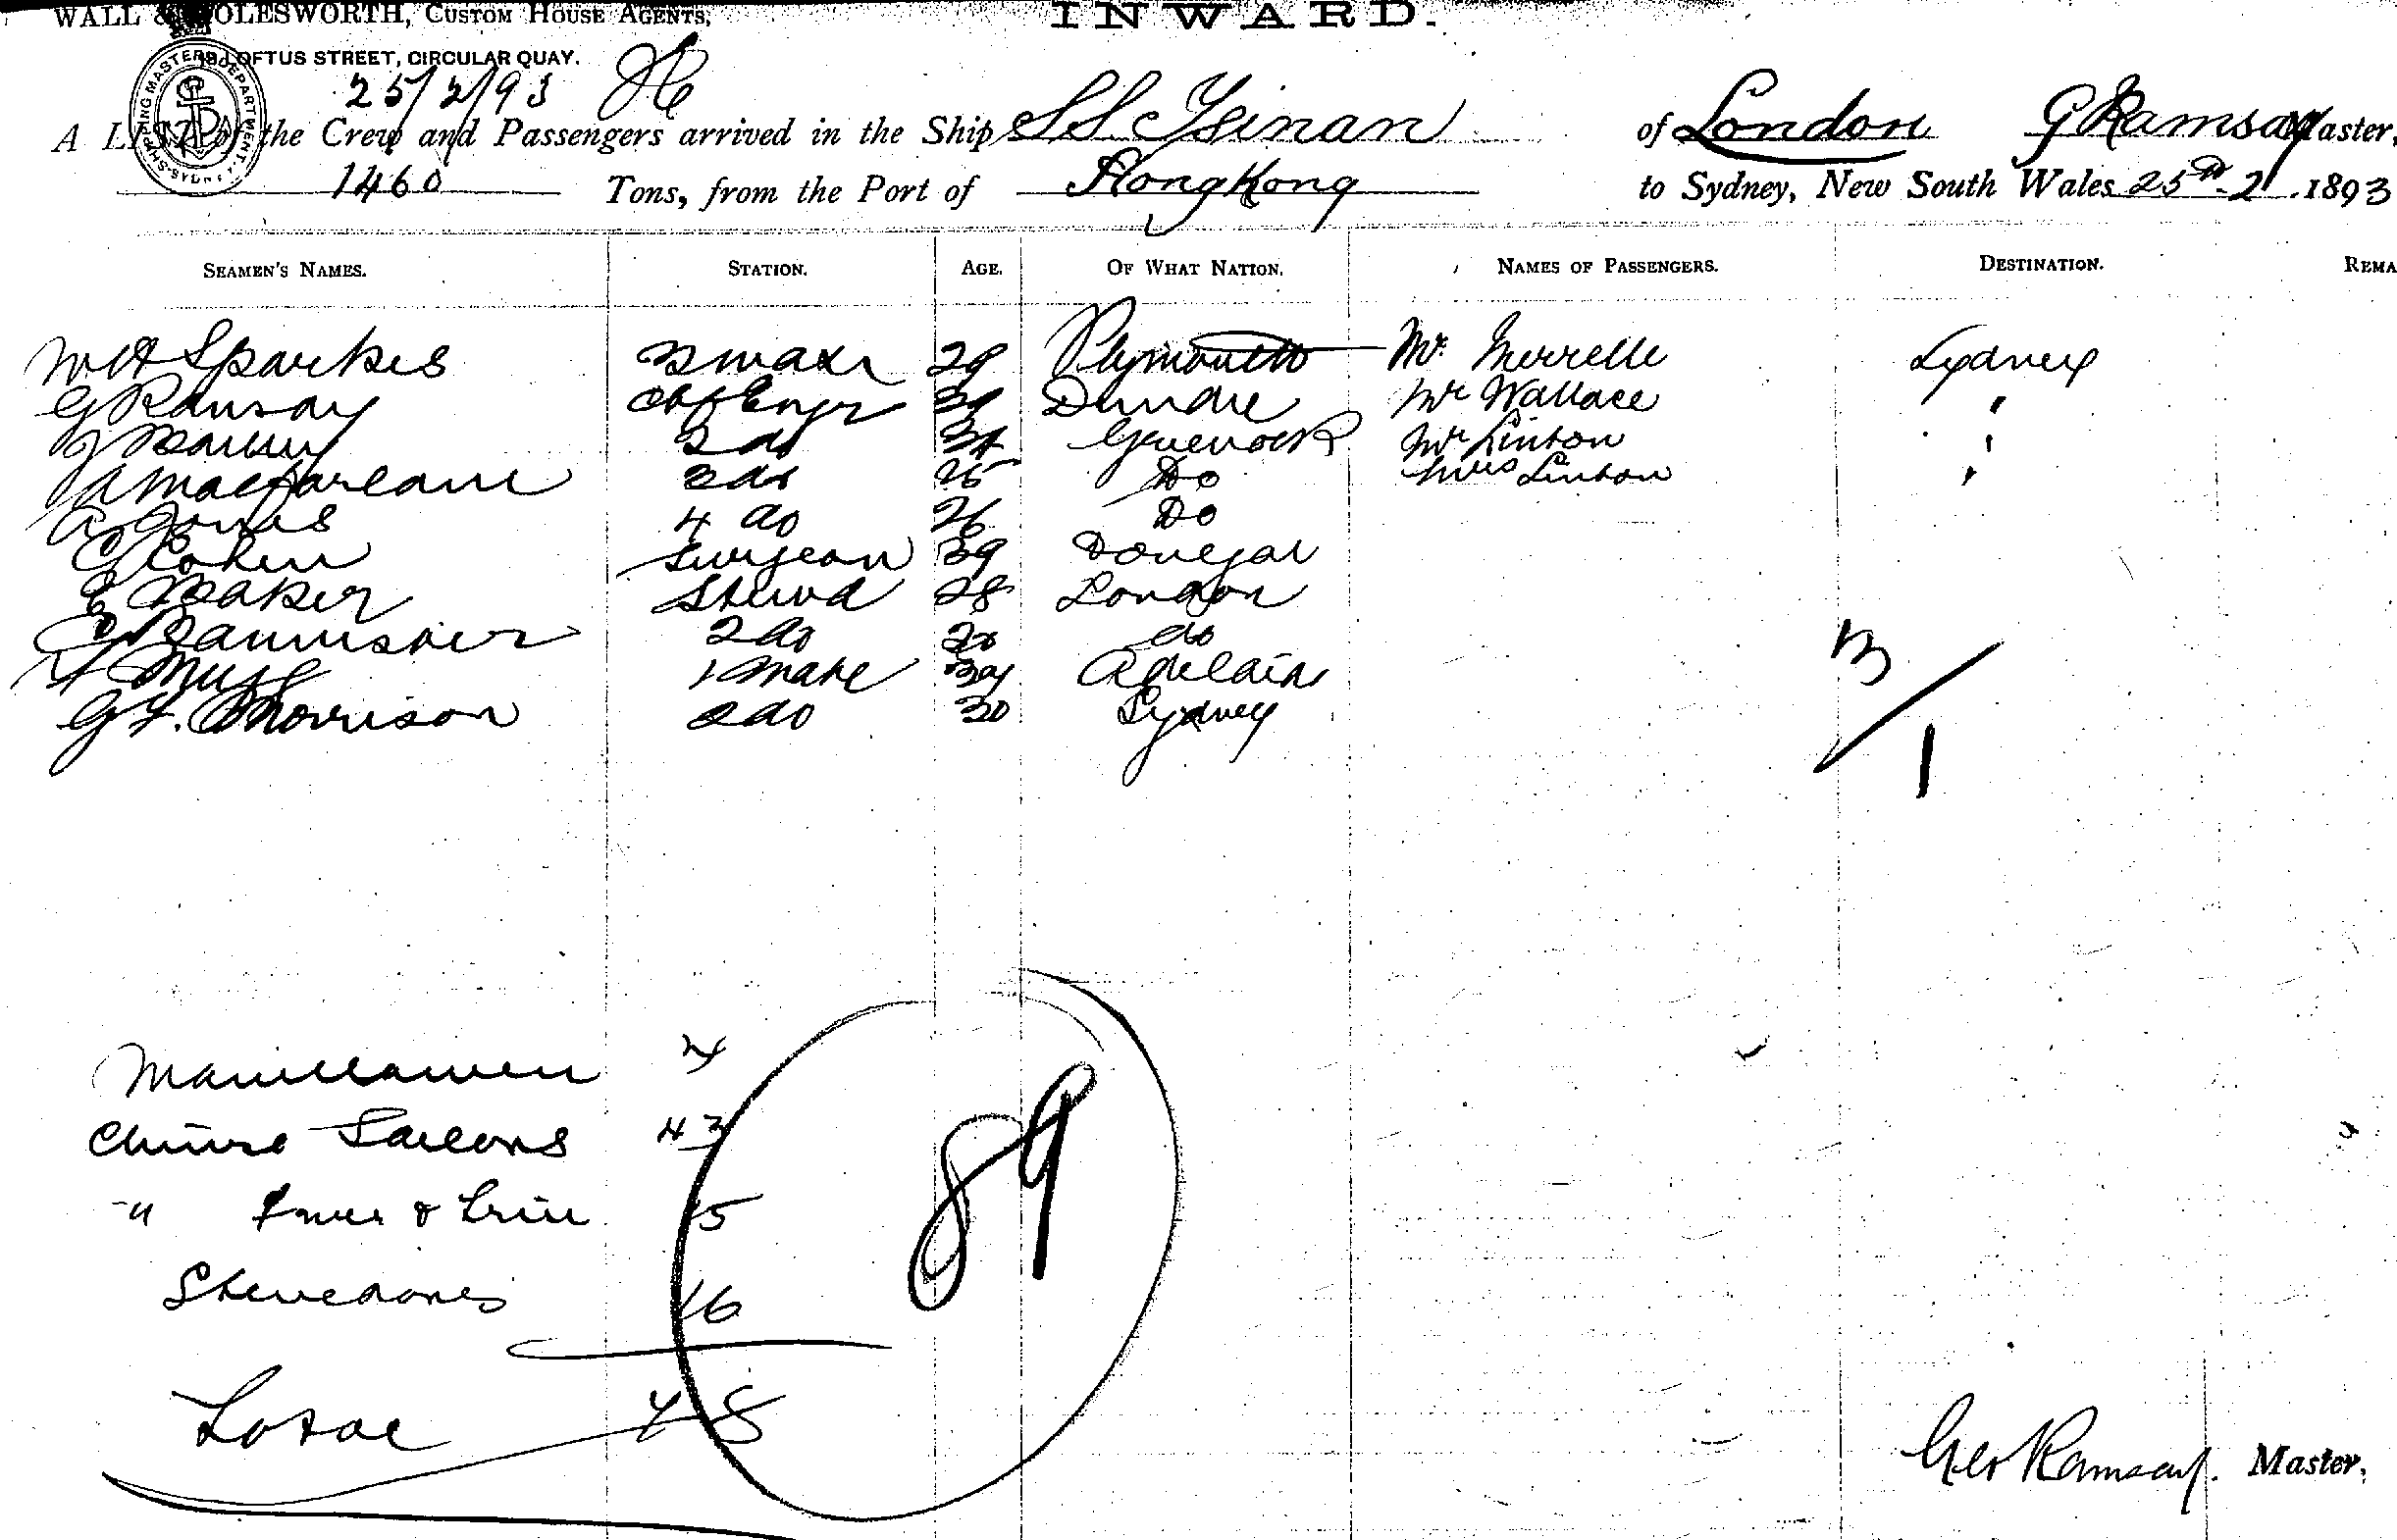 WALL & WOLESWORTH, CUSTOM HOUSE AGENTS,
INWARD.
LOFTUS STREET, CIRCULAR QUAY.
SHIPPING MASTERS DEPARTMENT. SYDNEY
25/2/93
A LIST of the Crew and Passengers arrived in the Ship SS Tsinan of London G Ramsay Master,
1460 Tons, from the Port of HongKong to Sydney, New South Wales 25th 2 1893
SEAMEN'S NAMES. STATION. AGE. OF WHAT NATION. NAMES OF PASSENGERS. DESTINATION. REMA
W H Sparkes 29 Plymouth Mr Sydney
G Ramsay Chf Engr Dundee Mr Wallace "
J 2 do 34 Greenock Mr Linton "
J A Macfarlane 3 do 25 Do Mrs Linton "
A Jones 4 do 26 Do
C Cohen Surgeon 39 Donegal
E Baker Stewd 28 London
C Bannister 2 do 20 do
1 mate Adelaide
G F. Morrison 2 do 30 Sydney
13/1
Manillamen 4
Chinese Sailors 43
" & 15
Stevedores 16
89
Total 78
Geo Ramsay. Master,